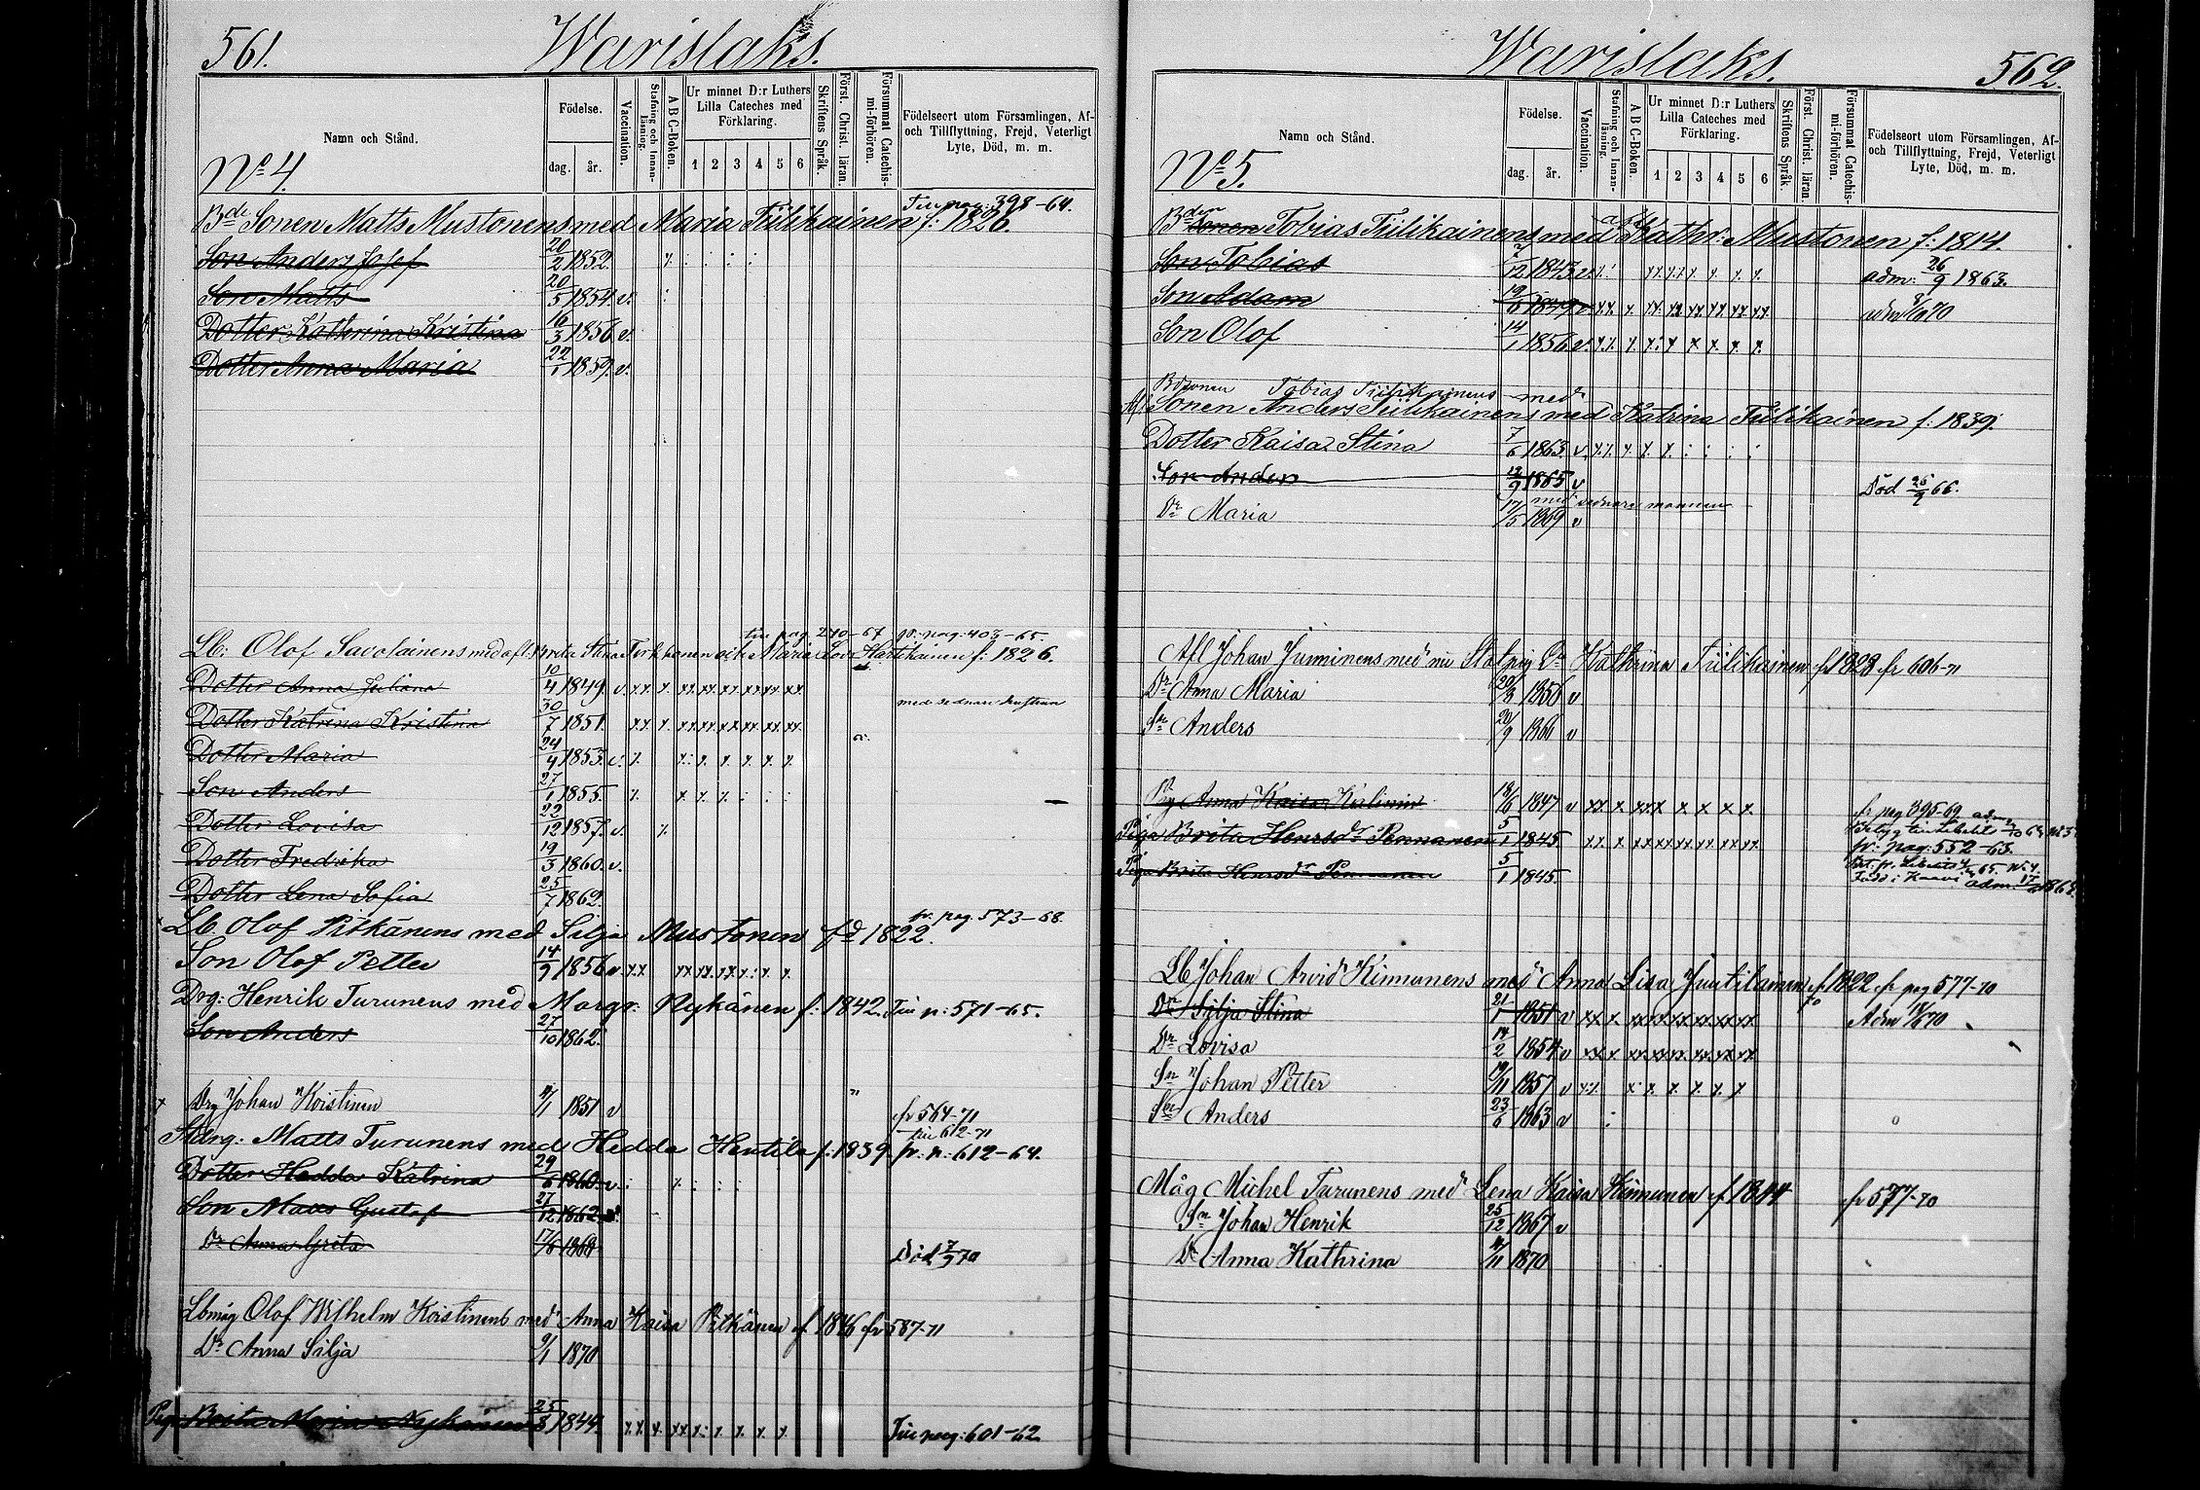 561.
Warislaks.
Namn och Stånd.
Födelse.
dag.
år.
Vaccination.
Stafning och Innan-läsning.
A B C-Boken.
Ur minnet D:r Luthers Lilla Cateches med Förklaring.
1 2 3 4 5 6
Skriftens Språk.
Först. Christ. läran.
Försummat Catechis-mi-förhören.
Födelseort utom Församlingen, Af- och Tillflyttning, Frejd, Veterligt Lyte, Död, m. m.
No 4.
Till pag: 398-64.
Bde Sonen Matts Mustonens med Maria Tiilikainen f: 1826.
Son Anders Josef 20/2 1852.
Son Matts 20/5 1854 v.
Dotter Kathrina Kristina 16/3 1856 v.
Dotter Anna Maria 22/1 1859. v.
till pag 210-67 fr. pag: 403-65.
Lb: Olof Savolainens med afl. Brita Stina Turkkonen och Maria Lov. Hartikainen f: 1826.
Dotter Anna Juliana 10/4 1849 v. xx x xx xx xx xx xx xx
med sednare hustrun
Dotter Katrina Kristina 30/7 1851 xx x xx xx xx xx xx xx
Dotter Maria 24/4 1853. v.
Son Anders 27/1 1855.
Dotter Lovisa 22/12 1857. v.
Dotter Fredrika 19/3 1860. v.
Dotter Lena Sofia 25/7 1862.
fr. pag. 573-68.
Lb. Olof Pitkänens med Silja Mustonen fd 1822.
Son Olof Petter 14/9 1856 v. xx
Drg: Henrik Turunens med Margr: Nykänen f: 1842. Till p: 571-65.
Son Anders 27/10 1862.
Drg Johan Koistinen 11/1 1851 v
fr 564-71
till 612-71
Stdrg: Matts Turunens med Hedda Hentilä f: 1839 fr: p: 612-64.
Dotter Hedda Katrina 29/6 1860. v.
Son Matts Gustaf 27/12 1862
Dr Anna Greta 17/6 1868 Död 7/9 70
Lbmåg Olof Wilhelm Koistinens med Anna Kaisa Pitkänen f. 1846 fr 587-71
Dr Anna Silja 9/1 1870
Piga Brita Maria Nykänen 25/3 1844. Till pag: 601-62

Warislaks.
562.
Namn och Stånd.
Födelse.
dag.
år.
Vaccination.
Stafning och Innan-läsning.
A B C-Boken.
Ur minnet D:r Luthers Lilla Cateches med Förklaring.
1 2 3 4 5 6
Skriftens Språk.
Först. Christ. läran.
Försummat Catechis-mi-förhören.
Födelseort utom Församlingen, Af- och Tillflyttning, Frejd, Veterligt Lyte, Död, m. m.
No 5.
Bden Sonen Tobias Tiilikainens med afl Kathr: Mustonen f: 1814.
Son Tobias 7/12 1843 v adm: 26/9 1863.
Son Adam 19/6 1849 v adm 70
Son Olof 14/1 1856 v.
Bdsonen Tobias Tiilikainens med
Afl Sonen Anders Tiilikainens med Katrina Tiilikainen f: 1839.
Dotter Kaisa Stina 7/6 1863. v.
Son Anders 12/9 1865 v Död 25/2 66.
med sednare mannen
Dr Maria 17/5 1869 v
Afl Johan Jumminens med nu Statpig Dr Kathrina Tiilikainen f 1828 fr 606-71
Dr Anna Maria 20/3 1856 v
Sn Anders 20/9 1860 v
Pig Anna Kaisa Kalinin 18/6 1847 v xx x xxx x x x x
fr pag 395-69
Piga Brita Henrsdr Pennanen 5/1 1845.
fr: pag: 552-63.
Piga Brita Henrsdr Pennanen 5/1 1845.
Född i Kaavi
Lb Johan Arvid Kinnunens med Anna Lisa Juutilainen f 1822 fr pag 577-70
Dr Silja Stina 21/1 1851 v Adm 70
Dr Lovisa 14/2 1854 v
Sn Johan Petter 19/11 1857 v
Sn Anders 23/6 1863 v
Måg Michel Turunens med Lena Kaisa Kinnunen f 1844 fr 577-70
Sn Johan Henrik 25/12 1867 v
Dr Anna Kathrina 11/11 1870